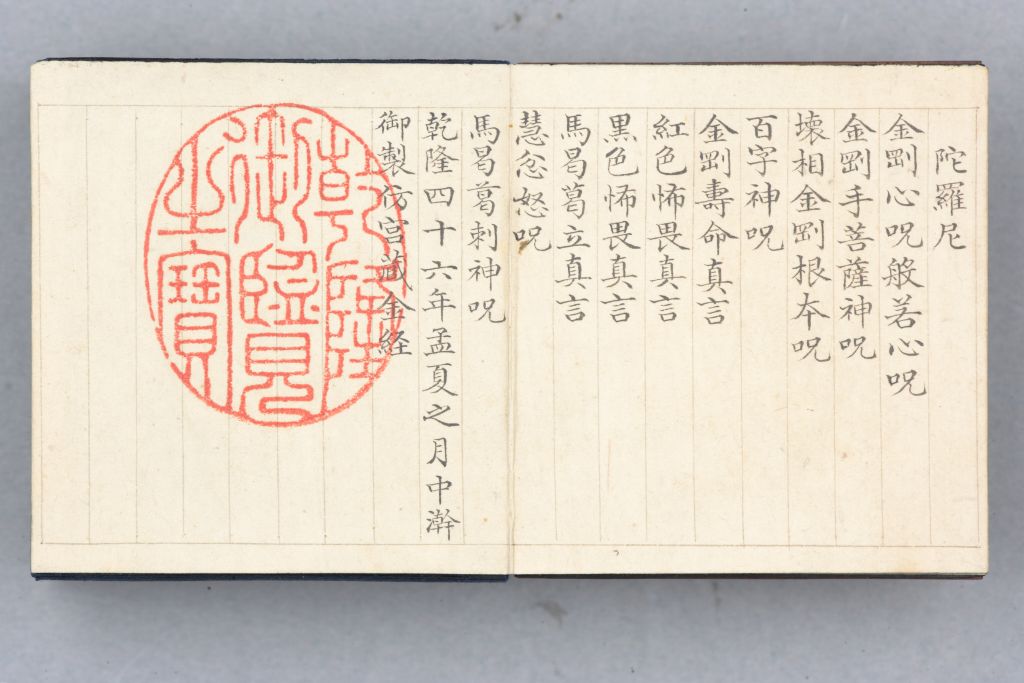 陀羅尼
金剛心呪般若心呪
金剛手菩薩神呪
壊相金剛根本呪
百字神呪
金剛壽命真言
紅色怖畏真言
黒色怖畏真言
馬曷葛立真言
慧忿怒呪
馬曷葛刺神呪
乾隆四十六年孟夏之月中澣
御製仿宮蔵金経
乾隆
御臨見
之寳